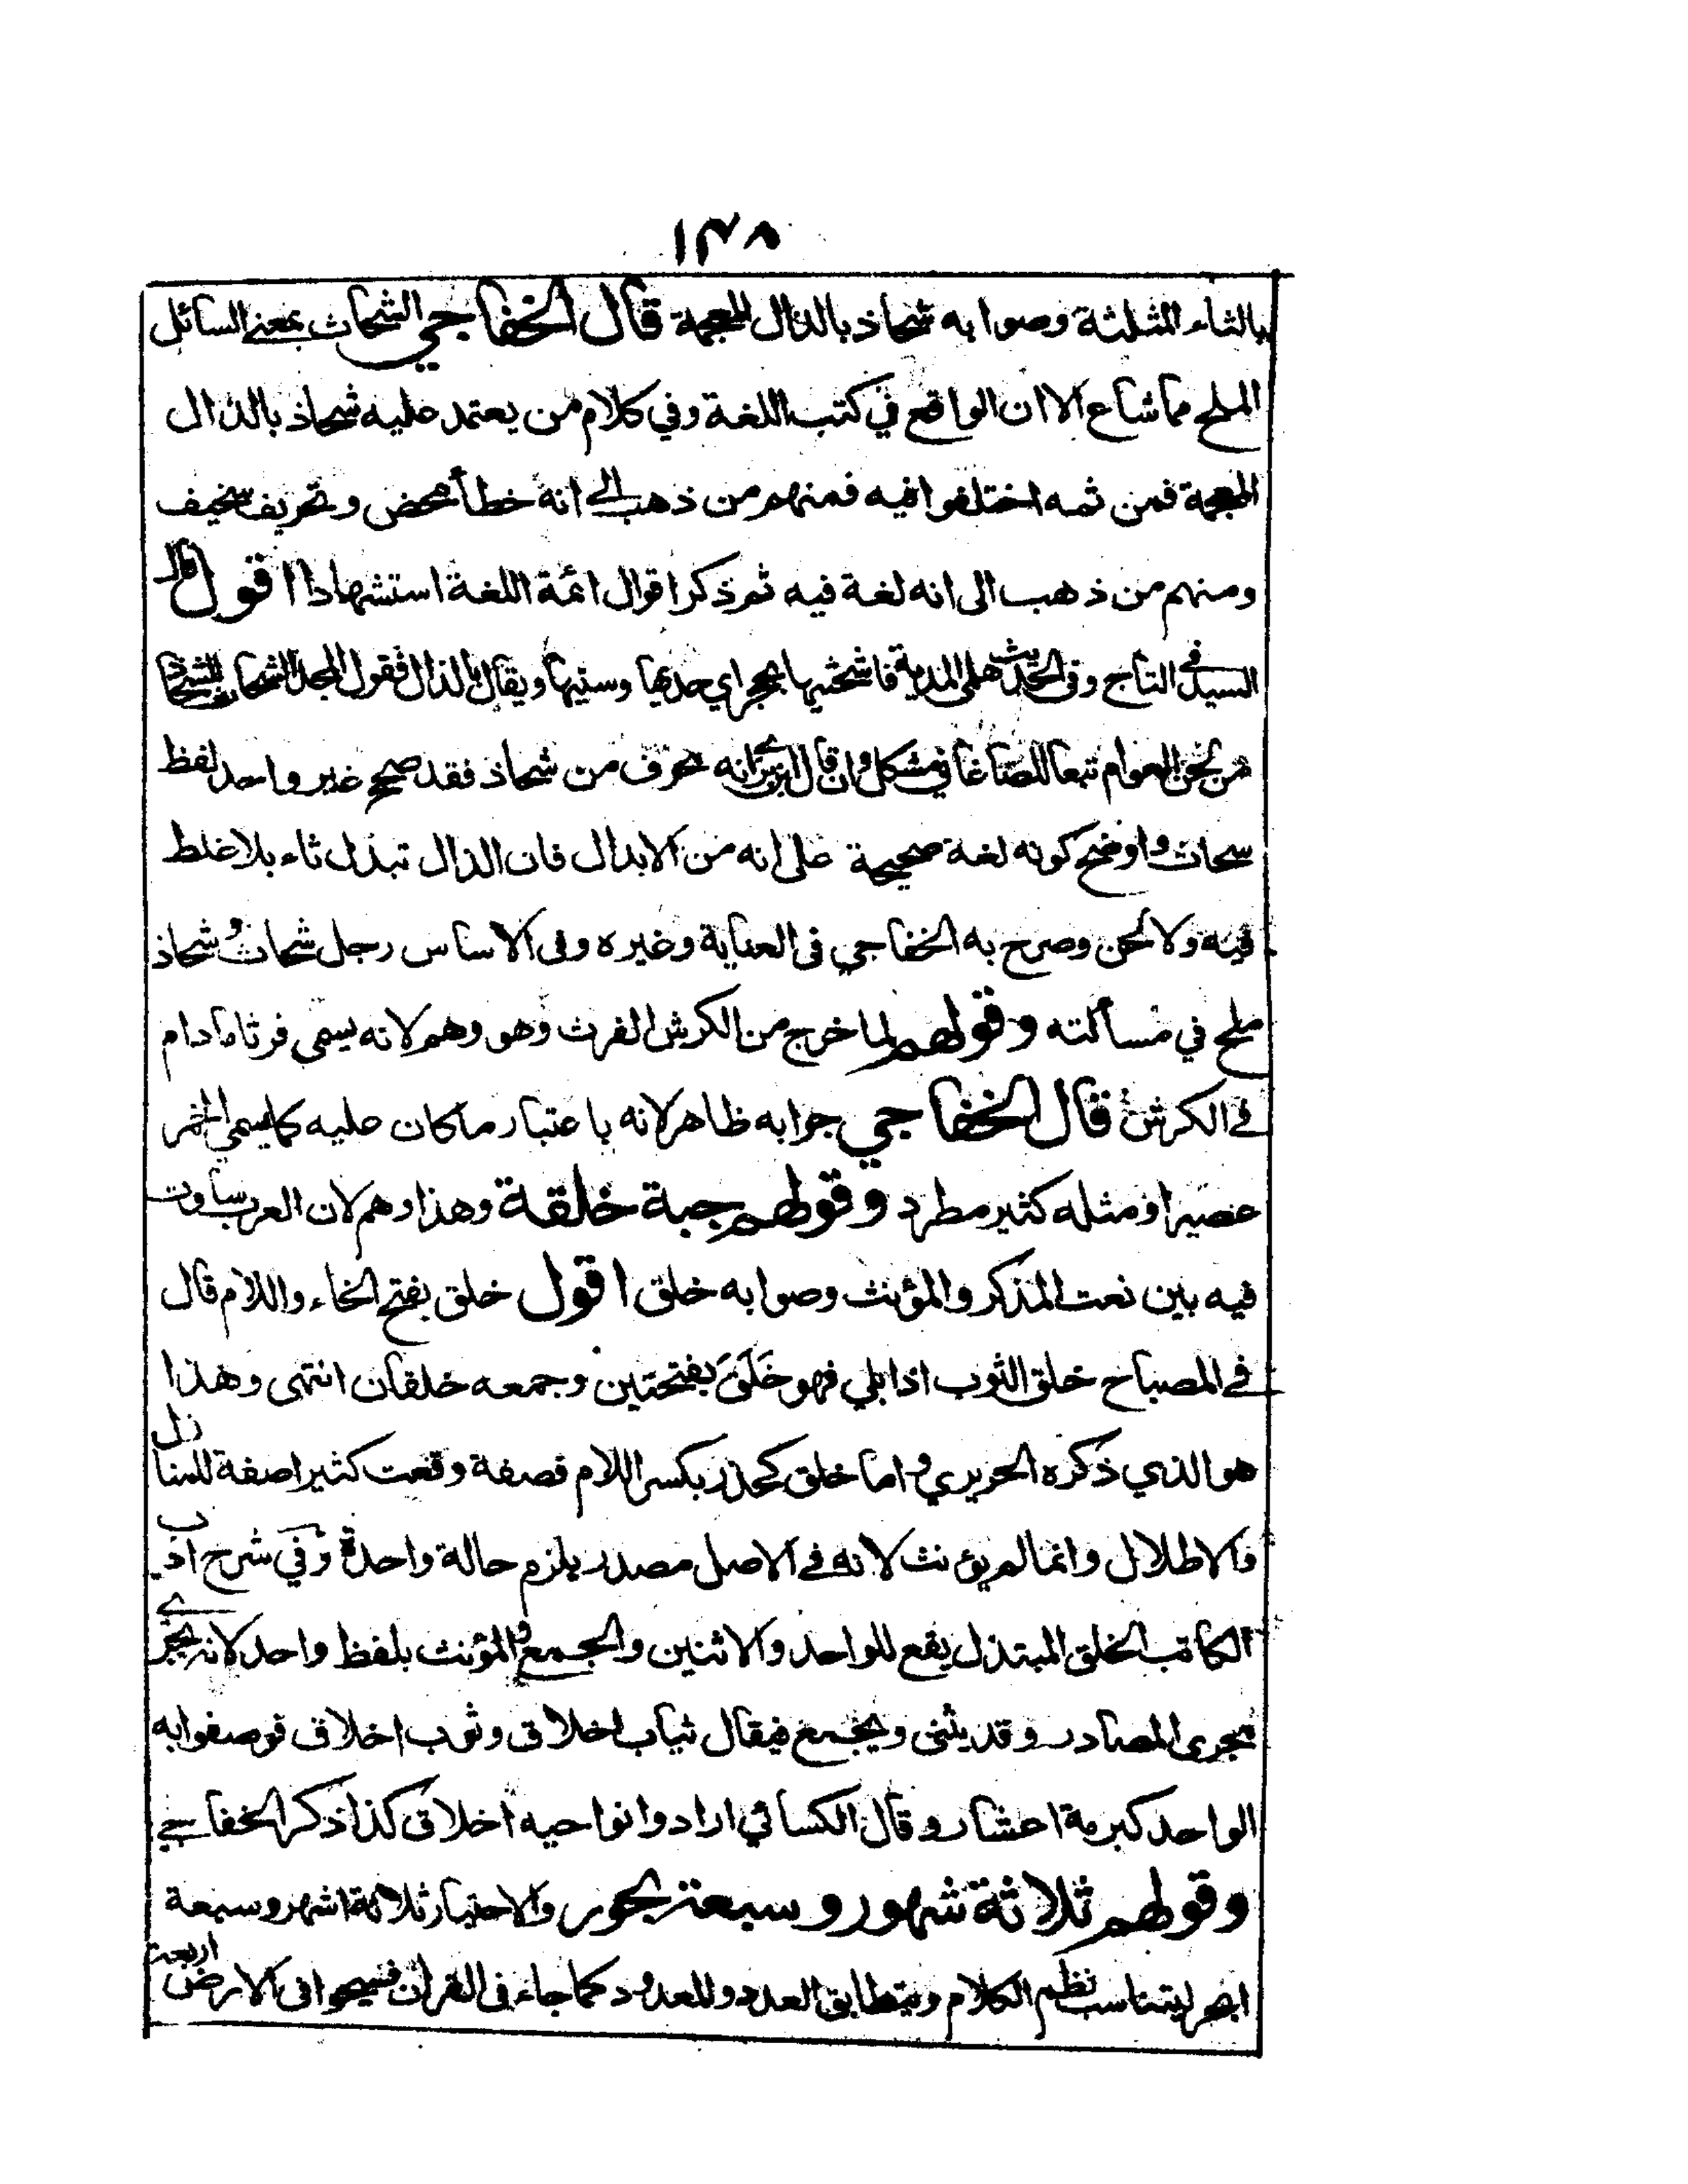 ١٣٨
بالثاء المثلثة وصوابه شحاذ بالذال المعجمة قال الخفاجي الشحاث بمعنى السائل
الملح مما شاع الا ان الواقع في كتب اللغة وفي كلام من يعتمد عليه شحاذ بالذال
المعجمة فمن ثمه اختلفوا فيه فمنهم من ذهب الى انه خطأ محض وتحريف سخيف
ومنهم من ذهب الى انه لغة فيه ثم ذكر اقوال ائمة اللغة استشهادا اقول قال
السيد في التاج وفى الحديث هلمى المدية فاشحثيها بحجر اي حديها وسنيها ويقال بالذال فقول المجد الشحاث للشحاذ
من لحن العوام تبعا للصاغاني مشكل وان قال ابن بري انه محرف من شحاذ فقد صحح غير واحد لفظ
سحاث واوضح كونه لغة صحيحة على انه من الابدال فان الذال تبدل ثاء بلا غلط
فيه ولا لحن وصرح به الخفاجي فى العناية وغيره وفى الاساس رجل شحاث وشحاذ
ملح في مسألته وقولهم لما خرج من الكرش الفرث وهو وهم لانه يسمى فرثا مادام
في الكرش قال الخفاجي جوابه ظاهر لانه باعتبار ما كان عليه كما يسمى الخمر
عصيرا ومثله كثير مطرد وقولهم جبة خلقة وهذا وهم لان العرب ساوت
فيه بين نعت المذكر والمؤنث وصوابه خلق اقول خلق بفتح الخاء واللام قال
في المصباح خلق الثوب اذا بلي فهو خَلَقَ بفتحتين وجمعه خلقان انتهى وهذا
هو الذي ذكره الحريري واما خلق كحذر بكسر اللام فصفة وقعت كثيرا صفة للمنازل
والاطلال وانما لم يؤنث لانه في الاصل مصدر يلزم حالة واحدة وفي شرح ادب
الكاتب الخلق المبتذل يقع للواحد والاثنين والجمع والمؤنث بلفظ واحد لانه يجرى
مجرى المصادر وقد يثنى ويجمع فيقال ثياب اخلاق وثوب اخلاق فوصفوا به
الواحد كبرمة اعشار وقال الكسائي ارادوا نواحيه اخلاق كذا ذكر الخفاجي
وقولهم ثلاثة شهور وسبعة بحور والاختيار ثلاثة اشهر وسبعة
ابحر ليتناسب نظم الكلام ويتطابق العدد والمعدود كما جاء فى القرآن فسيحوا فى الارض اربعة